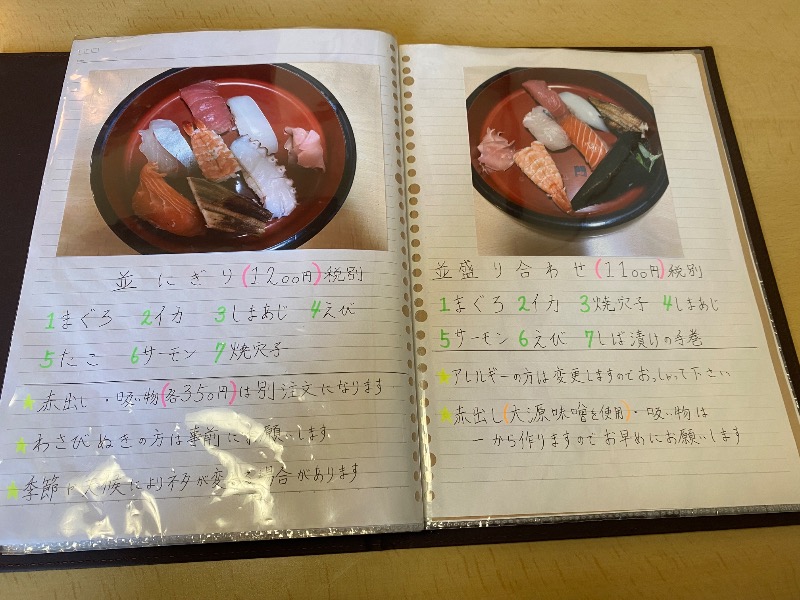 並にぎり(1200円)税別
1まぐろ 2イカ 3しまあじ 4えび
5たこ 6サーモン 7焼穴子
★赤出し・吸い物(各350円)は別注文になります
★わさびぬきの方は事前にお願いします
★季節や天候によりネタが変わる場合があります
並盛り合わせ(1100円)税別
1まぐろ 2イカ 3焼穴子 4しまあじ
5サーモン 6えび 7しば漬けの手巻
★アレルギーの方は変更しますのでおっしゃって下さい
★赤出し(大源味噌を使用)・吸い物は
一から作りますのでお早めにお願いします